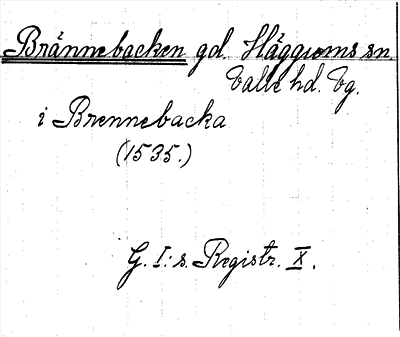 Brännebacken gd. Häggums sn.
Valle hd. Vg.
i Brennebacka
(1535.)
G. I:s. Registr. X.